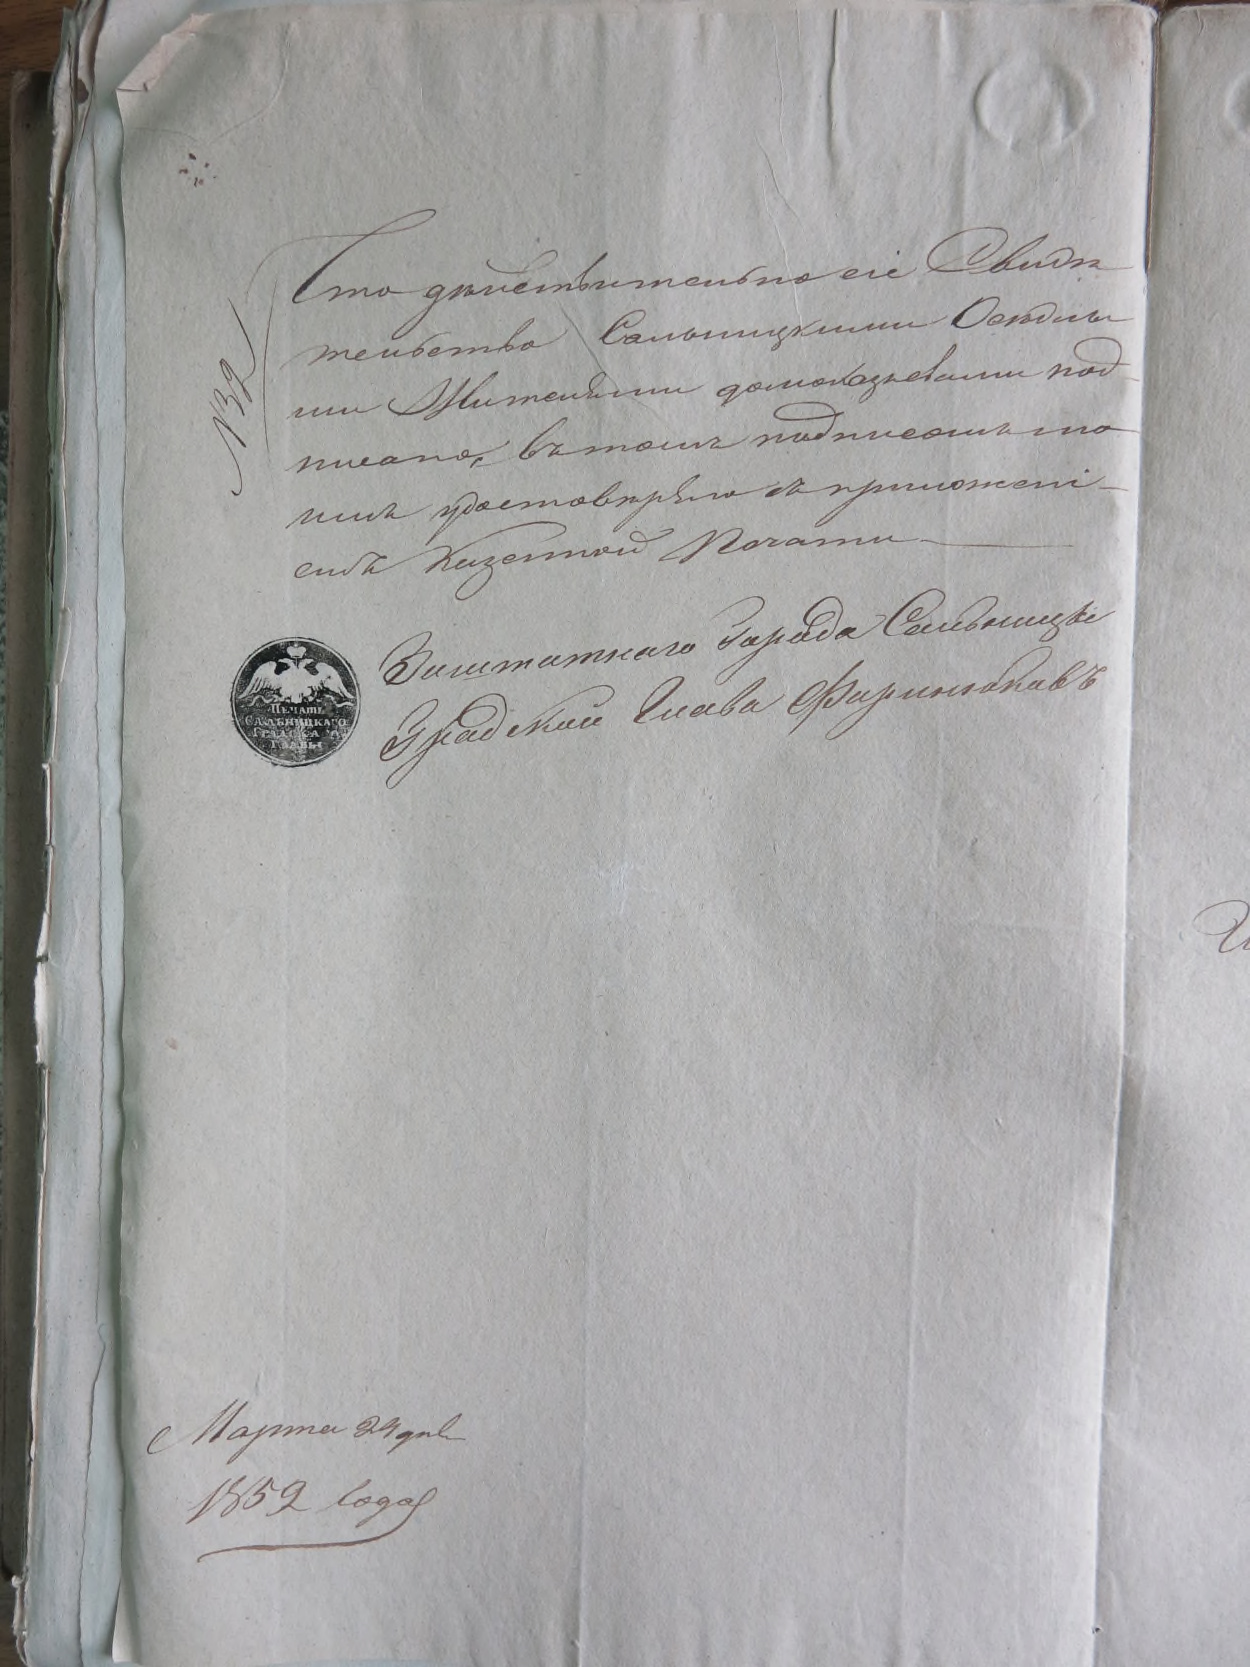 № 32
Что действительно сіе Свиде
тельство Сальницкими Оседлы
ми Жителями домохозяевами под-
писано, въ томъ подписомъ мо
имъ удостоверяю съ приложені-
емъ Казенной Печати
Заштатнаго Города Сальницы
Градскій Глава
ПЕЧАТЬ
САЛЬНИЦКАГО
ГРАДСКАГО
ГЛАВЫ
Марта 24 дня
1852 года